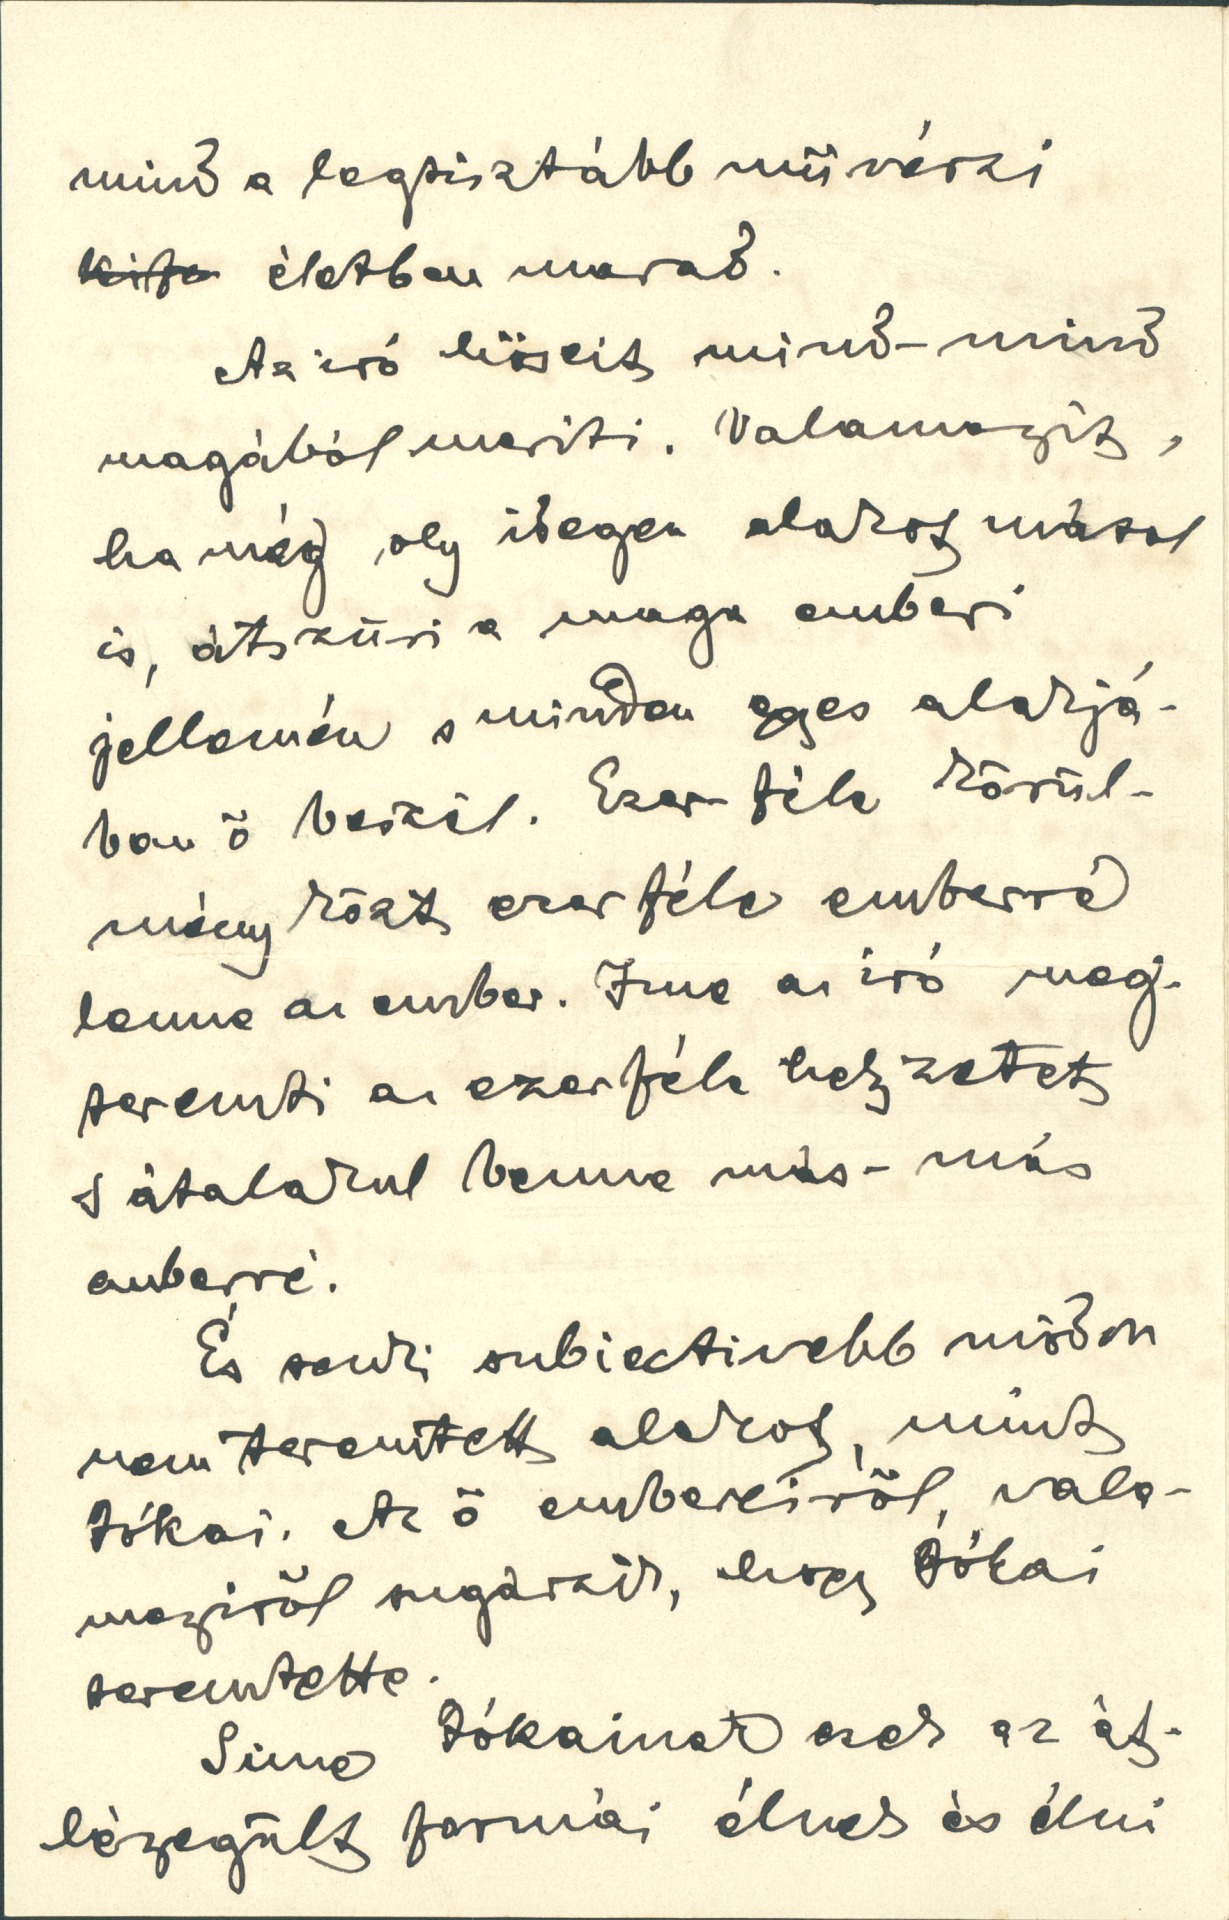 mind a legtisztább művészi
életben marad.
Az író hőseit mind-mind
magából meríti. Valamenyit,
ha még oly idegen alakot másol
is, átszűri a maga emberi
jellemén s minden egyes alakjá-
ban ő beszél. Ezer-féle körül-
mény közt ezerféle emberré
lenne az ember. Ime az író meg-
teremti az ezerféle helyzetet
s átalakul benne más-más
emberré.
És senki subiectivebb módon
nem teremtett alakot, mint
Jókai. Az ő embereiről, vala-
menyiről sugárzik, hogy Jókai
teremtette.
S ime Jókainak ezek az át-
lényegült formái élnek és élni